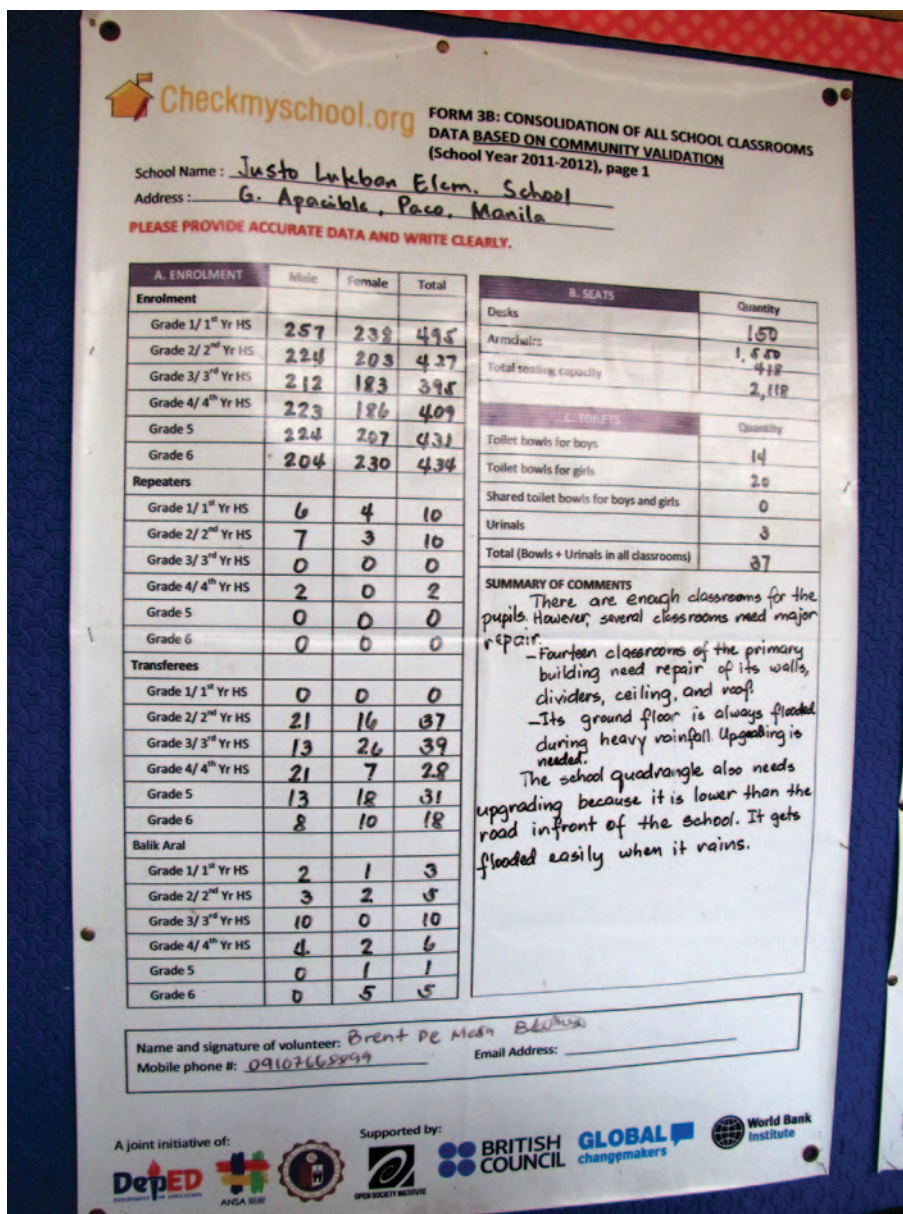 Checkmyschool.org
FORM 3B: CONSOLIDATION OF ALL SCHOOL CLASSROOMS
DATA BASED ON COMMUNITY VALIDATION
(School Year 2011-2012), page 1
School Name : Justo Lukban Elem. School
Address : G. Apacible, Paco, Manila
PLEASE PROVIDE ACCURATE DATA AND WRITE CLEARLY.
A. ENROLMENT Male Female Total
Enrolment
Grade 1/ 1st Yr HS 257 238 495
Grade 2/ 2nd Yr HS 224 203 427
Grade 3/ 3rd Yr HS 212 183 395
Grade 4/ 4th Yr HS 223 186 409
Grade 5 224 207 431
Grade 6 204 230 434
Repeaters
Grade 1/ 1st Yr HS 6 4 10
Grade 2/ 2nd Yr HS 7 3 10
Grade 3/ 3rd Yr HS 0 0 0
Grade 4/ 4th Yr HS 2 0 2
Grade 5 0 0 0
Grade 6 0 0 0
Transferees
Grade 1/ 1st Yr HS 0 0 0
Grade 2/ 2nd Yr HS 21 16 37
Grade 3/ 3rd Yr HS 13 26 39
Grade 4/ 4th Yr HS 21 7 28
Grade 5 13 18 31
Grade 6 8 10 18
Balik Aral
Grade 1/ 1st Yr HS 2 1 3
Grade 2/ 2nd Yr HS 3 2 5
Grade 3/ 3rd Yr HS 10 0 10
Grade 4/ 4th Yr HS 4 2 6
Grade 5 0 1 1
Grade 6 0 5 5
B. SEATS Quantity
Desks 150
Armchairs 1,550
418
Total seating capacity 2,118
C. TOILETS Quantity
Toilet bowls for boys 14
Toilet bowls for girls 20
Shared toilet bowls for boys and girls 0
Urinals 3
Total (Bowls + Urinals in all classrooms) 37
SUMMARY OF COMMENTS
There are enough classrooms for the
pupils. However, several classrooms need major
repair.
-Fourteen classrooms of the primary
building need repair of its walls,
dividers, ceiling, and roof.
-Its ground floor is always flooded
during heavy rainfall. Upgrading is
needed.
The school quadrangle also needs
upgrading because it is lower than the
road infront of the school. It gets
flooded easily when it rains.
Name and signature of volunteer: Brent De Mesa
Mobile phone #: 09107668899 Email Address:
A joint initiative of:
Supported by:
DepED
DEPARTMENT OF EDUCATION
ANSA
OPEN SOCIETY INSTITUTE
BRITISH
COUNCIL
GLOBAL
changemakers
World Bank
Institute